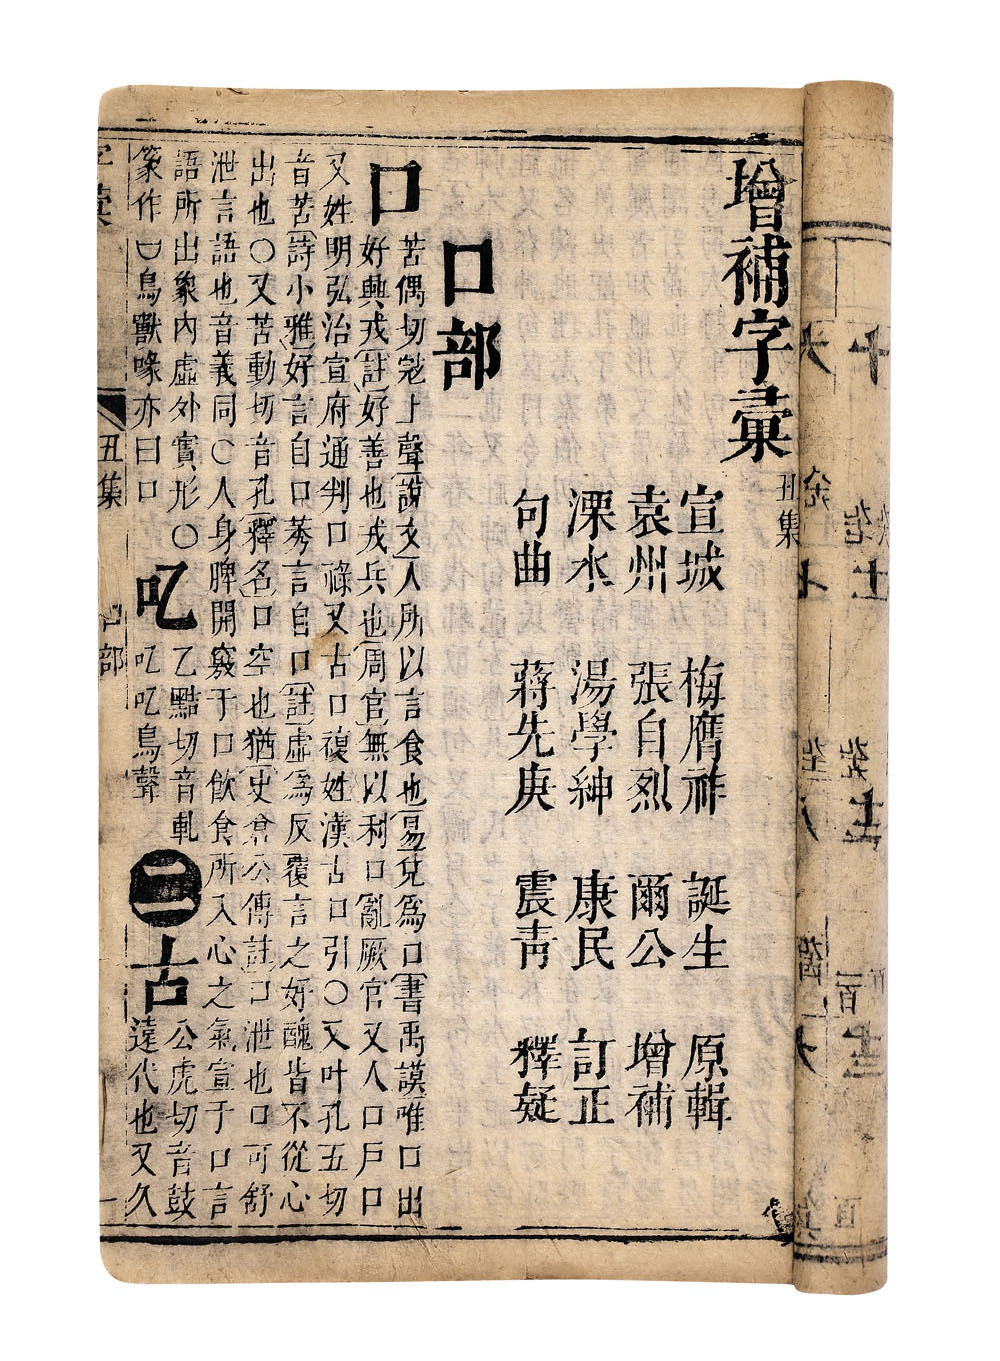 增補字彙
丑集
宣城 梅膺祚 誕生 原輯
袁州 張自烈 爾公 增補
溧水 湯學紳 康民 訂正
句曲 蔣先庚 震青 釋疑
口部
口 苦偶切寇上聲說文人所以言食也易兌為口書禹謨唯口出
好興戎註好善也戎兵也周官無以利口亂厥官又人口戶口
又姓明弘治宣府通判口祿又古口複姓漢古口引○又叶孔五切
音苦詩小雅好言自口莠言自口註虛為反覆言之好醜皆不從心
出也○又苦動切音孔釋名口空也猶史倉公傳註口泄也口可舒
泄言語也音義同○人身脾開竅于口飲食所入心之氣宣于口言
語所出象內虛外實形○叱乙黠切音軋二古公虎切音鼓
篆作鳥獸喙亦曰口叱叱鳥聲遠代也又久
字彙
丑集
口部
一